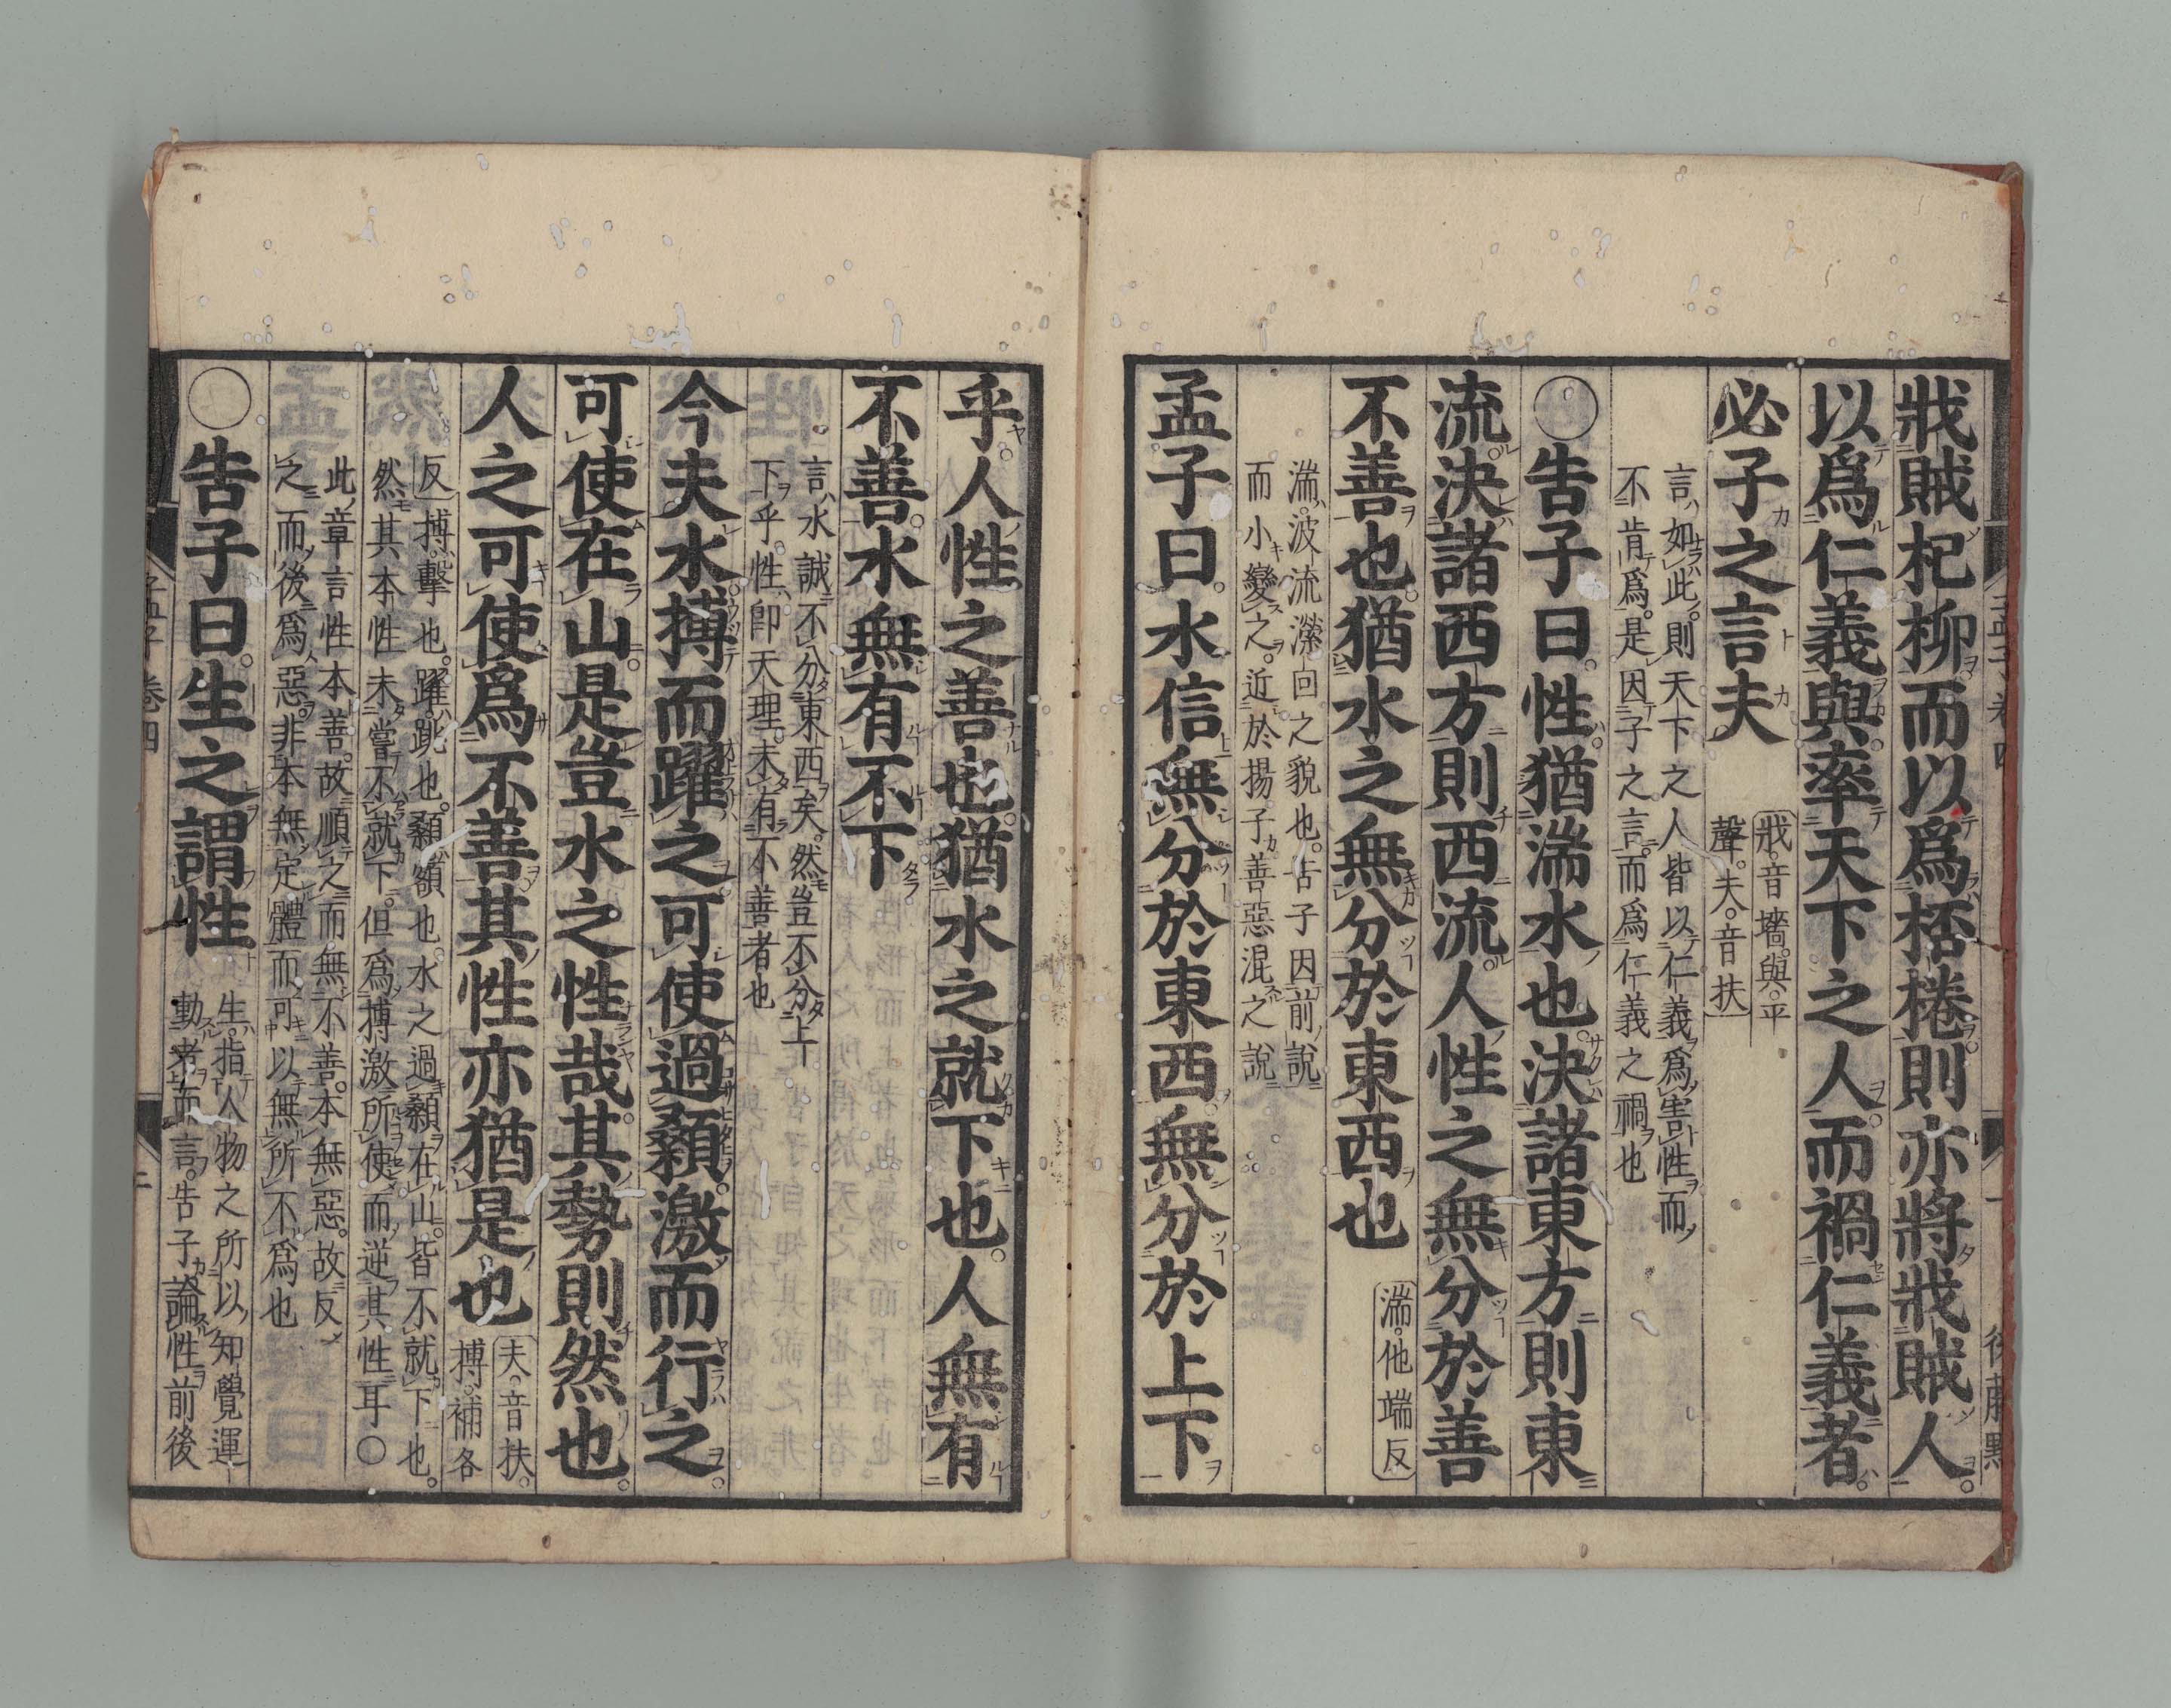 戕賊杞柳而以爲桮棬則亦將戕賊人
以爲仁義與率天下之人而禍仁義者
必子之言夫
戕音墻與平
聲夫音扶
言如此則天下之人皆以仁義爲害性而
不肯爲是因子之言而爲仁義之禍也
○告子曰性猶湍水也決諸東方則東
流決諸西方則西流人性之無分於善
不善也猶水之無分於東西也
湍他端反
湍波流瀠回之貌也告子因前說
而小變之近於揚子善惡混之說
孟子曰水信無分於東西無分於上下
乎人性之善也猶水之就下也人無有
不善水無有不下
言水誠不分東西矣然豈不分上
下乎性卽天理未有不善者也
今夫水搏而躍之可使過顙激而行之
可使在山是豈水之性哉其勢則然也
人之可使爲不善其性亦猶是也
夫音扶
搏補各
反搏擊也躍跳也顙額也水之過顙在山皆不就下也
然其本性未嘗不就下但爲搏激所使而逆其性耳○
此章言性本善故順之而無不善本無惡故反
之而後爲惡非本無定體而可以無所不爲也
○告子曰生之謂性
生指人物之所以知覺運
動者而言告子論性前後
孟子卷四
一
後藤點
孟子卷四
二